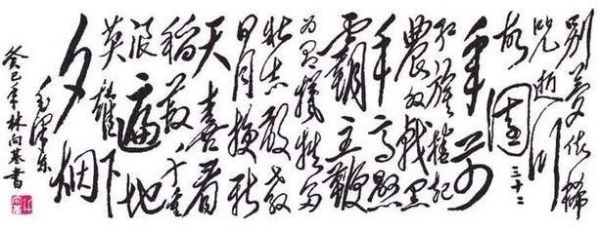 別夢依稀
咒逝川
故園三十二
年前
红旗捲起
農奴戟黑
手高懸
霸主鞭
为有犧牲多
壮志敢教
日月換新
天喜看
稻菽千重
浪遍地
英雄下
夕烟
毛泽东
癸巳年林向書